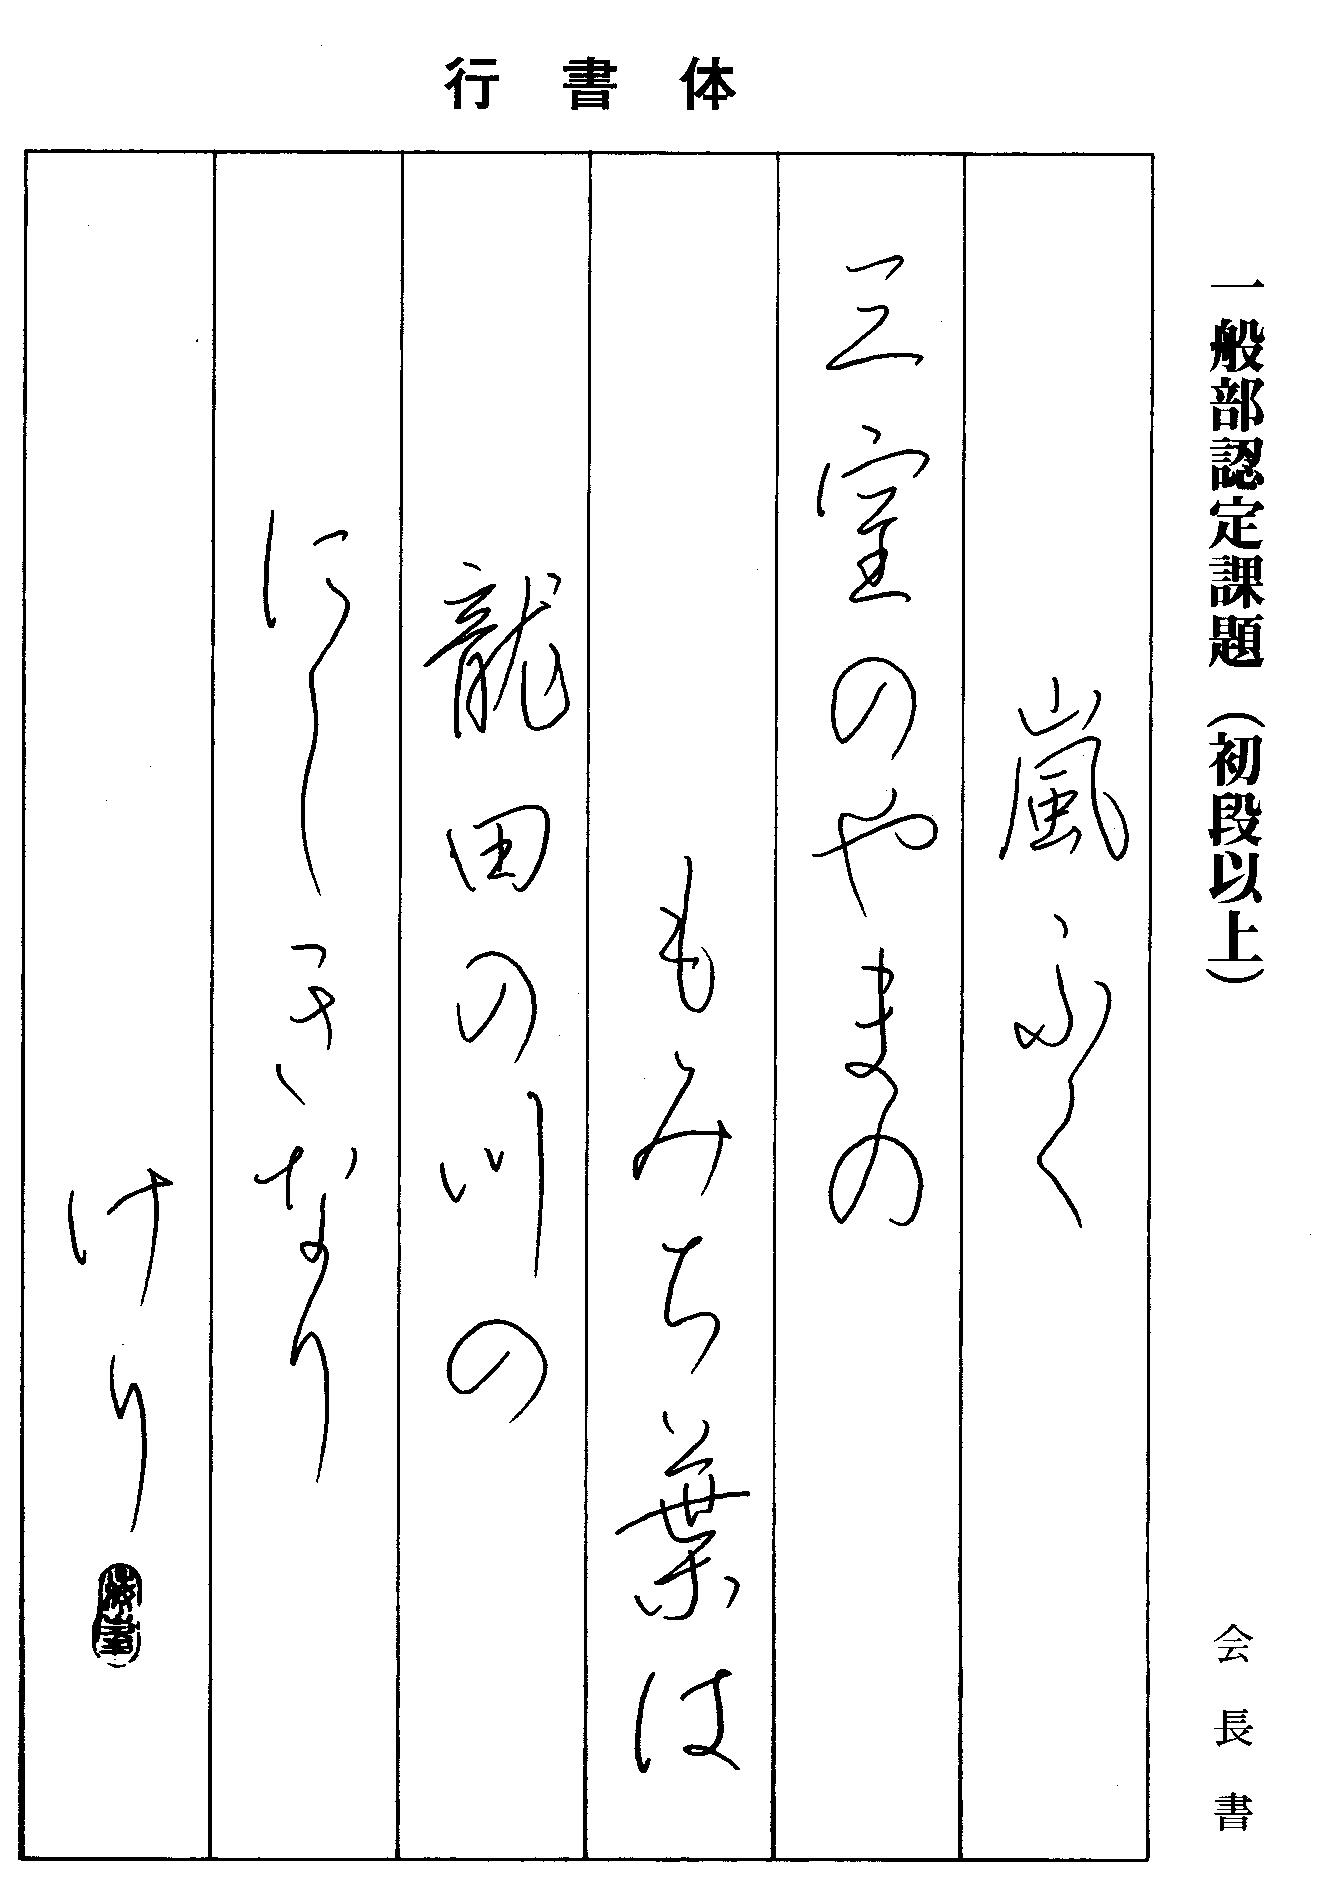 行書体
一般部認定課題（初段以上）
会長書
嵐ふく
三室のやまの
もみち葉は
龍田の川の
にしきなり
けり